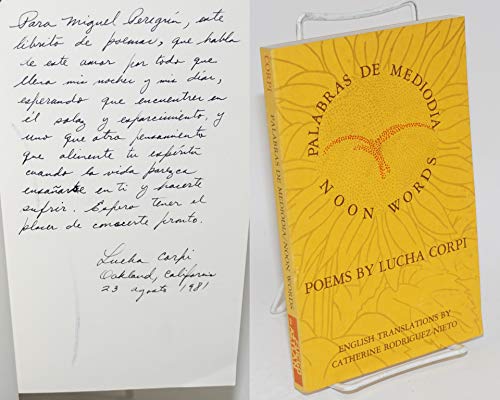 Para Miguel Peregrín, este
librito de poemas, que habla
de este amor por todo que
llena mis noches y mis días,
esperando que encuentres en
él solaz y esparcimiento, y
uno que otro pensamiento
que alimente tu espíritu
cuando la vida parezca
ensañarse en ti y hacerte
sufrir. Espero tener el
placer de conocerte pronto.
Lucha Corpi
Oakland, California
23 agosto 1981
CORPI
PALABRAS DE MEDIODIA/NOON WORDS
PALABRAS DE MEDIODIA
NOON WORDS
POEMS BY LUCHA CORPI
ENGLISH TRANSLATIONS BY
CATHERINE RODRIGUEZ-NIETO